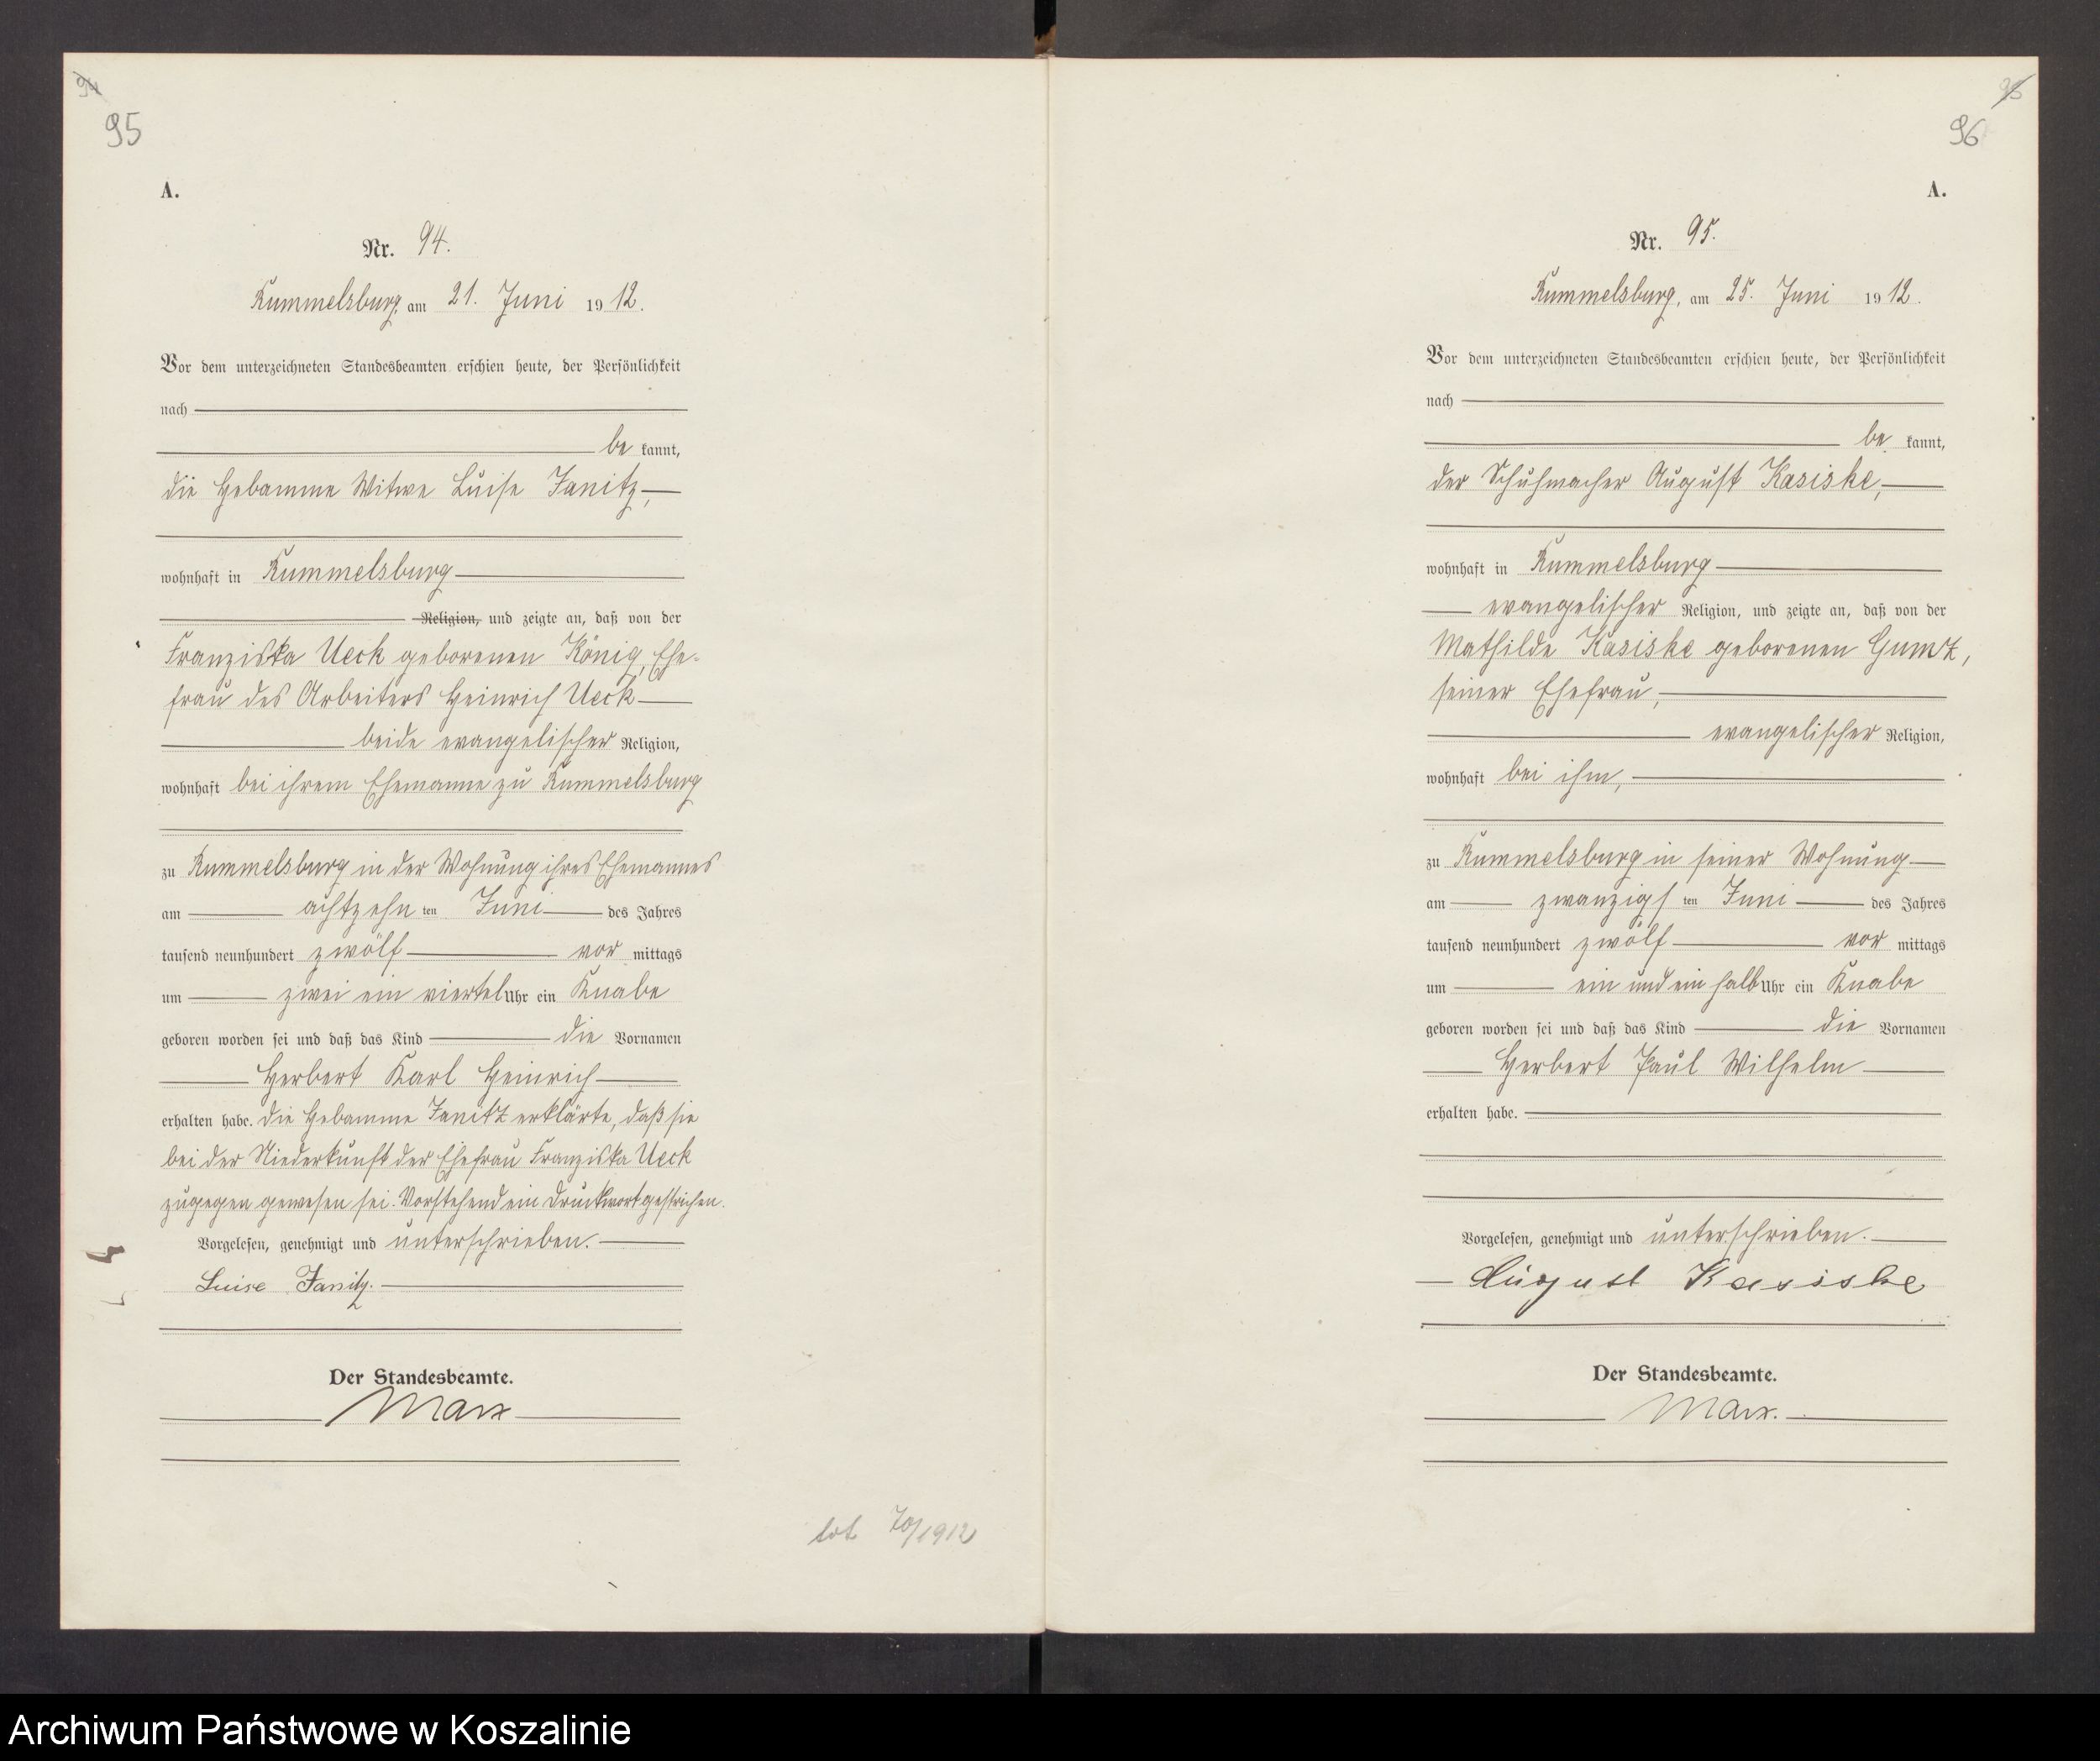 94
95
A.
Nr. 94.
Rummelsburg, am 21. Juni 1912.
Vor dem unterzeichneten Standesbeamten erschien heute, der Persönlichkeit
nach
be kannt,
die Hebamme Witwe Luise Janitz,
wohnhaft in Rummelsburg
Religion, und zeigte an, daß von der
Franziska Ueck geborenen König, Ehe-
frau des Arbeiters Heinrich Ueck
beide evangelischer Religion,
wohnhaft bei ihrem Ehemanne zu Rummelsburg
zu Rummelsburg in der Wohnung ihres Ehemannes
am achtzehn ten Juni des Jahres
tausend neunhundert zwölf vor mittags
um zwei ein viertel Uhr ein Knabe
geboren worden sei und daß das Kind die Vornamen
Herbert Karl Heinrich
erhalten habe. Die Hebamme Janitz erklärte, daß sie
bei der Niederkunft der Ehefrau Franziska Ueck
zugegen gewesen sei. Vorstehend ein Druckwort gestrichen.
Vorgelesen, genehmigt und unterschrieben.
Luise Janitz.
Der Standesbeamte.
Marx
tot 70/1912
96
A.
Nr. 95.
Rummelsburg, am 25. Juni 1912.
Vor dem unterzeichneten Standesbeamten erschien heute, der Persönlichkeit
nach
be kannt,
der Schuhmacher August Kasiske,
wohnhaft in Rummelsburg
evangelischer Religion, und zeigte an, daß von der
Mathilde Kasiske geborenen Gumz,
seiner Ehefrau,
evangelischer Religion,
wohnhaft bei ihm,
zu Rummelsburg in seiner Wohnung
am zwanzigs ten Juni des Jahres
tausend neunhundert zwölf vor mittags
um ein und ein halb Uhr ein Knabe
geboren worden sei und daß das Kind die Vornamen
Herbert Paul Wilhelm
erhalten habe.
Vorgelesen, genehmigt und unterschrieben.
August Kasiske
Der Standesbeamte.
Marx.
Archiwum Państwowe w Koszalinie